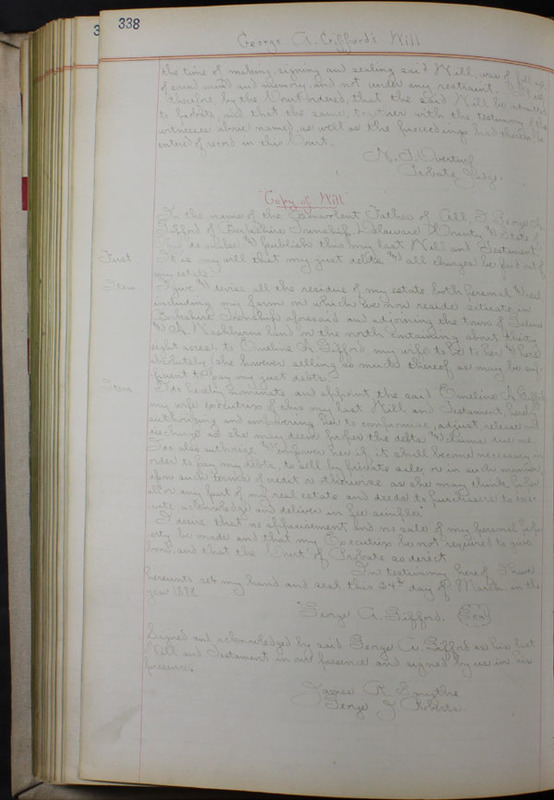 338
George A. Gifford's Will
the time of making, signing and sealing said Will, was of full age,
of sound mind and memory, and not under any restraint.
therefore by the Court ordered, that the said Will be admitted
to probate, and that the same, together with the testimony of the
witnesses above named, as well as the proceedings had thereon be
entered of record in this Court.
N. F. Overturf
Probate Judge.
"Copy of Will"
In the name of the Benevolent Father of All. I George A.
Gifford of Berkshire Township, Delaware County & State of
Ohio do make & publish this my last Will and Testament
First It is my will that my just debts & all charges be paid out of
my estate.
Item I give & devise all the residue of my estate both personal & real
including my farm on which we now reside situate in
Berkshire Township aforesaid and adjoining the town of Galena
on the north containing about thirty
eight acres, to Emeline A. Gifford my wife to be to her & heirs
absolutely she however selling so much thereof as may be suf-
ficient to pay my just debts
Item I do hereby nominate and appoint the said Emeline A. Gifford
my wife executrix of this my last Will and Testament, hereby
authorizing and empowering her to compromise, adjust, release and
discharge as she may deem proper the debts & claims due me.
I do also authorize & empower her if it shall become necessary in
order to pay my debts, to sell by private sale, or in such manner
upon such terms of credit or otherwise as she may think proper
all or any part of my real estate and deeds to purchasers to exe-
cute acknowledge and deliver in fee simple.
I desire that no appraisement and no sale of my personal prop-
erty be made and that my Executrix be not required to give
bond, and that the Court of Probate so direct.
In testimony hereof I have
hereunto set my hand and seal this 24th day of March in the
year
"George A. Gifford. (Seal)
Signed and acknowledged by said George A. Gifford as his last
Will and Testament in our presence and signed by us in his
presence.
James R. Smythe
George J. Roberts